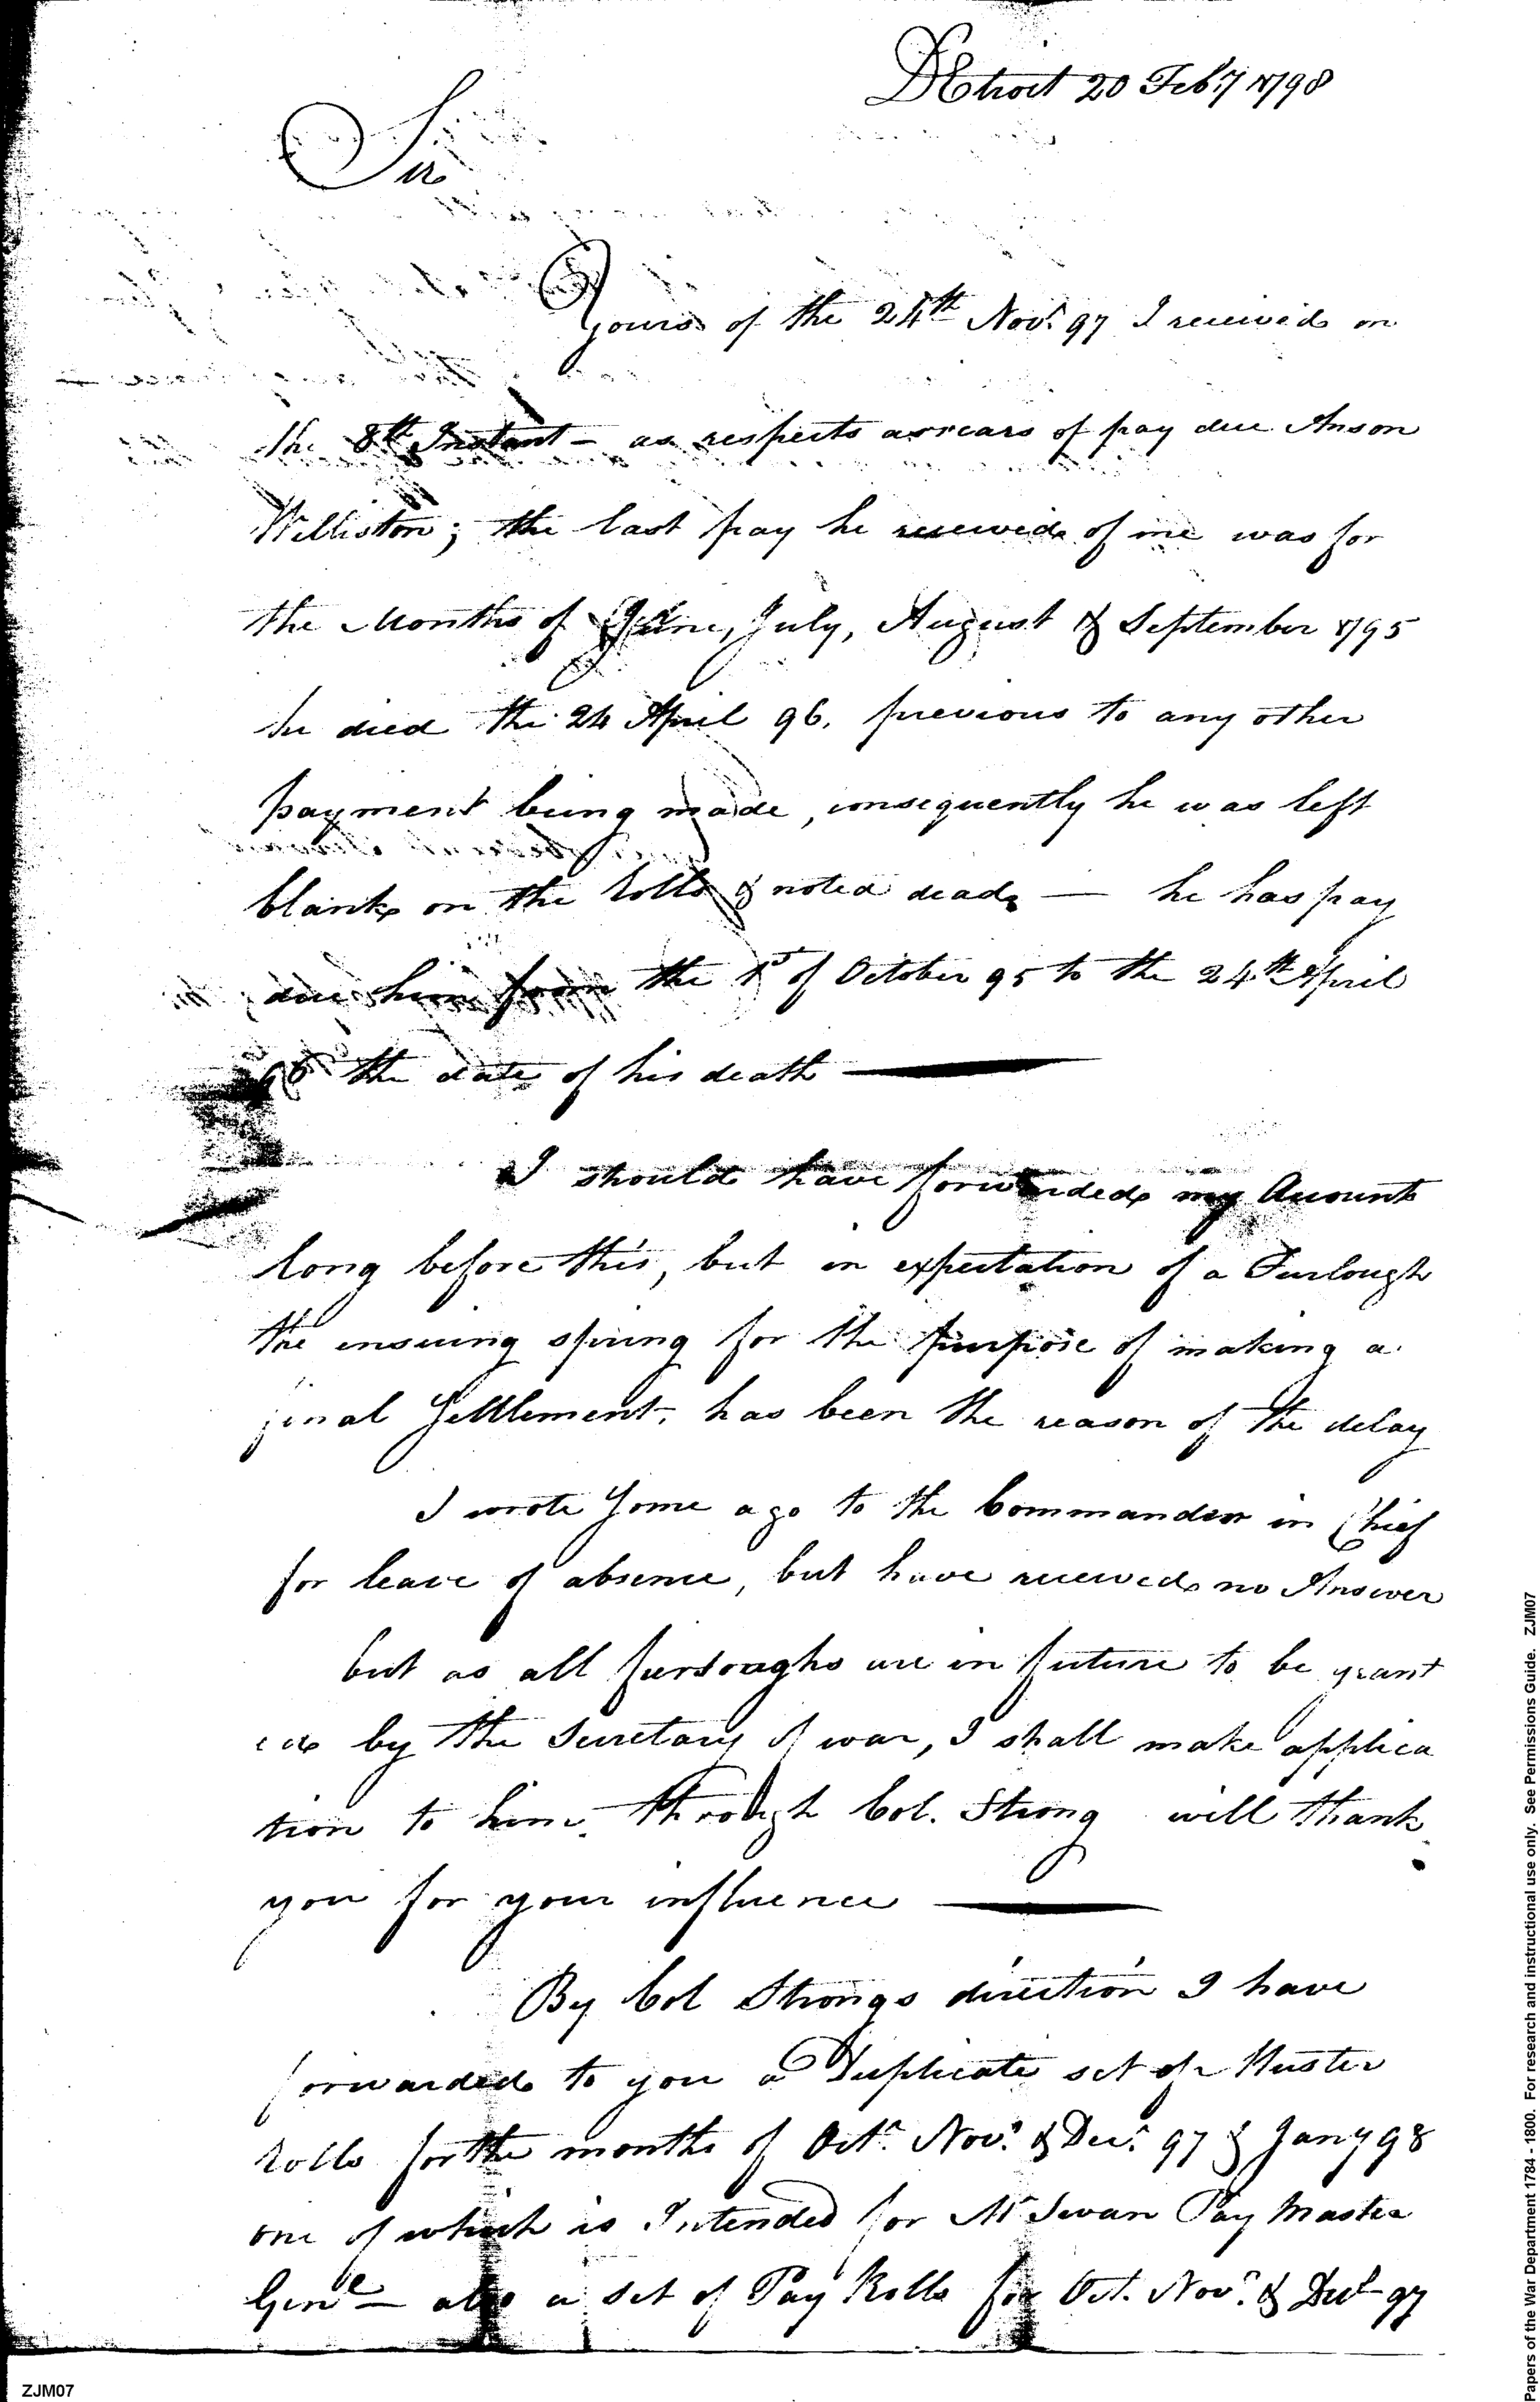 Detroit 20 Feby 1798
Sir
Yours of the 24th Novr 97 I received on
the 8th Instant – as respects arrears of pay due Anson
Williston; the last pay he received of me was for
the Months of June, July, August & September 1795
he died the 24 April 96. previous to any other
payment being made, consequently he was left
blank on the Rolls & noted dead — he has pay
due him from the 1st of October 95 to the 24th April
96 the date of his death —
I should have forwarded my Account
long before this, but in expectation of a Furlough
the ensuing spring for the purpose of making a
final Settlement, has been the reason of the delay
I wrote Some ago to the Commander in Chief
for leave of absence, but have received no Answer
but as all furloughs are in future to be grant
ed by the Secretary of war, I shall make applica
tion to him, through Col. Strong will thank
you for your influence —
By Col Strongs direction I have
forwarded to you a Duplicate set of Muster
Rolls for the months of Octr. Novr. & Decr. 97 & Jany 98
one of which is Intended for Mr Swan Pay Master
Genl – also a set of Pay Rolls for Oct. Novr. & Decr 97
ZJM07
Papers of the War Department 1784 - 1800. For research and instructional use only. See Permissions Guide. ZJM07